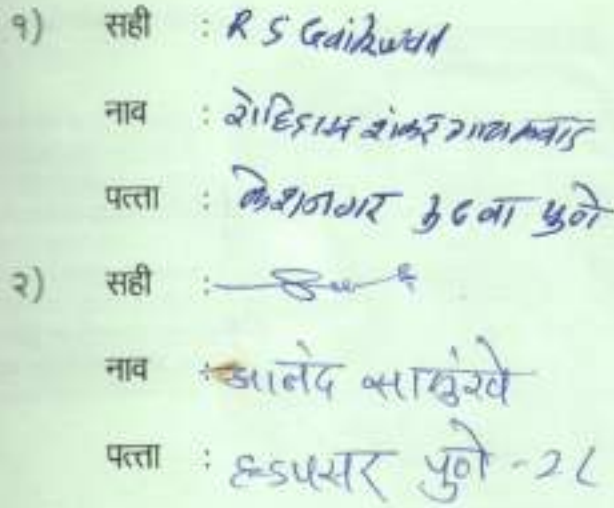 १) सही : R S Gaikwad
नाव : रोहिदास शंकर गायकवाड
पत्ता : केशवनगर मुंढवा पुणे
२) सही :
नाव : आनंद साळुंखे
पत्ता : हडपसर पुणे - २८